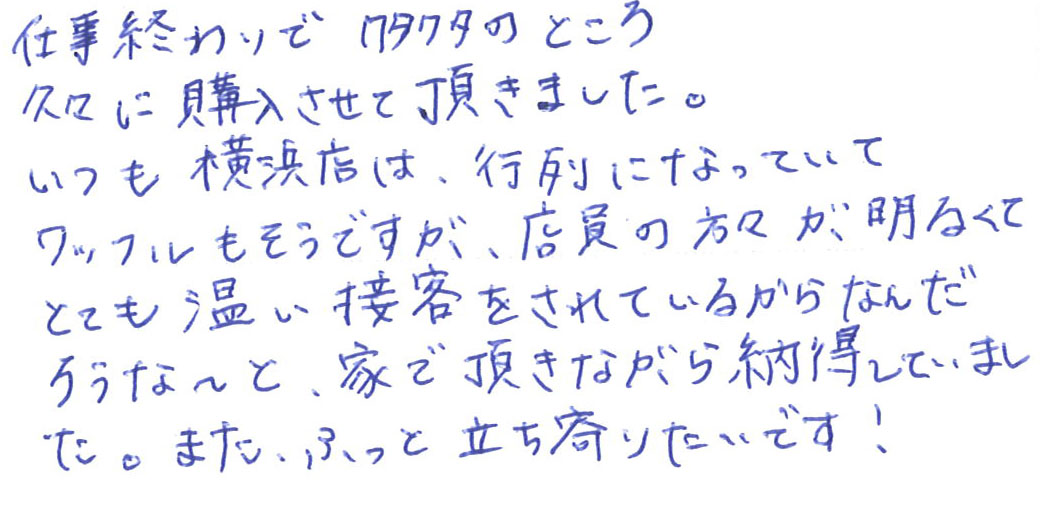 仕事終わりで クタクタの ところ
久々に 購入させて頂きました。
いつも 横浜店は、行列になっていて
ワッフルもそうですが、店員の方々が、明るくて
とても 温い 接客をされているからなんだ
ろうな〜と、家で頂きながら納得していまし
た。また、ふっと 立ち寄りたいです!